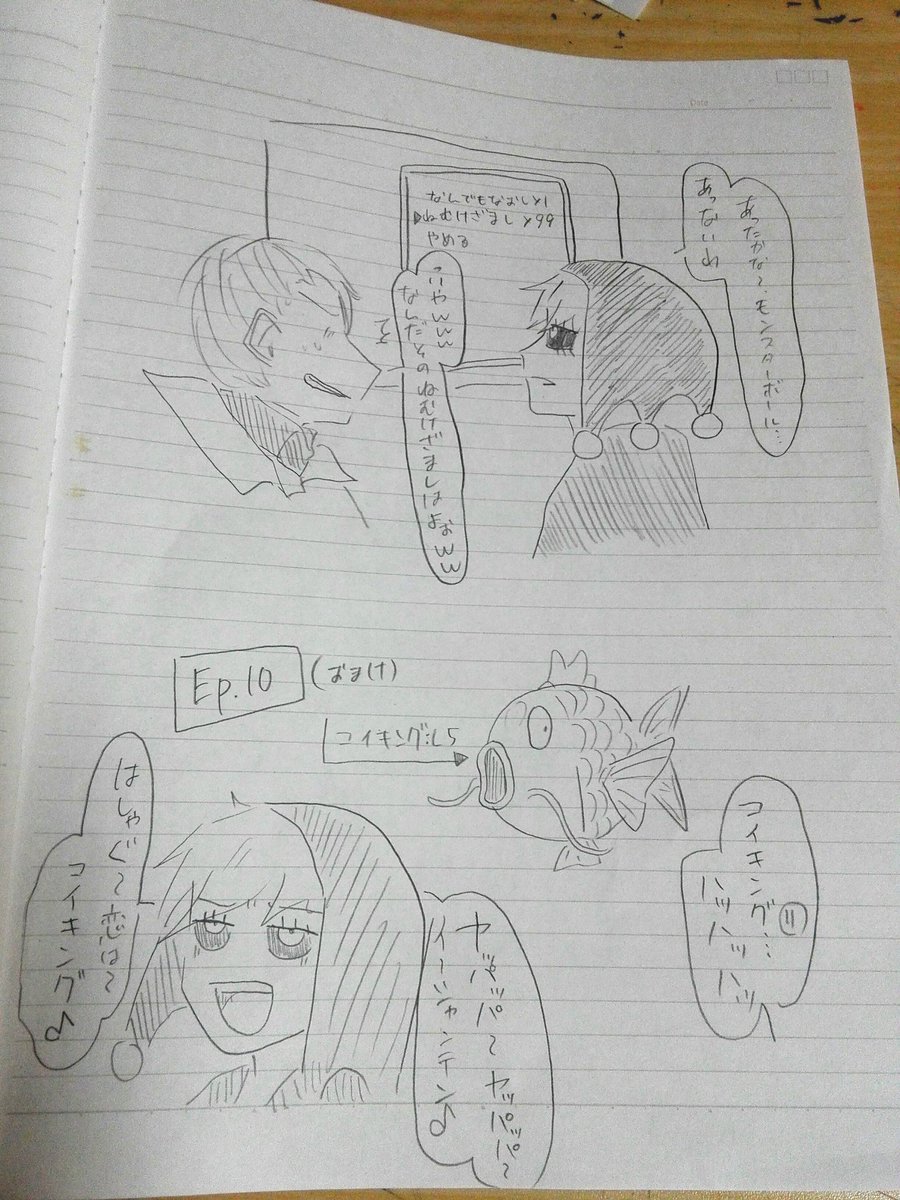 Date
あったかな〜、モンスターボール…
あっないわ
なんでもなおし×1
▶ねむけざまし×99
やめる
いやwww
なんだそのねむけざましはよぉww
Ep.10
(おまけ)
コイキング:L5
コイキング…
ハッハッハッ
ヤッパッパ〜ヤッパッパ〜
イーシャンテン♪
はしゃぐ〜恋は〜
コイキング♪